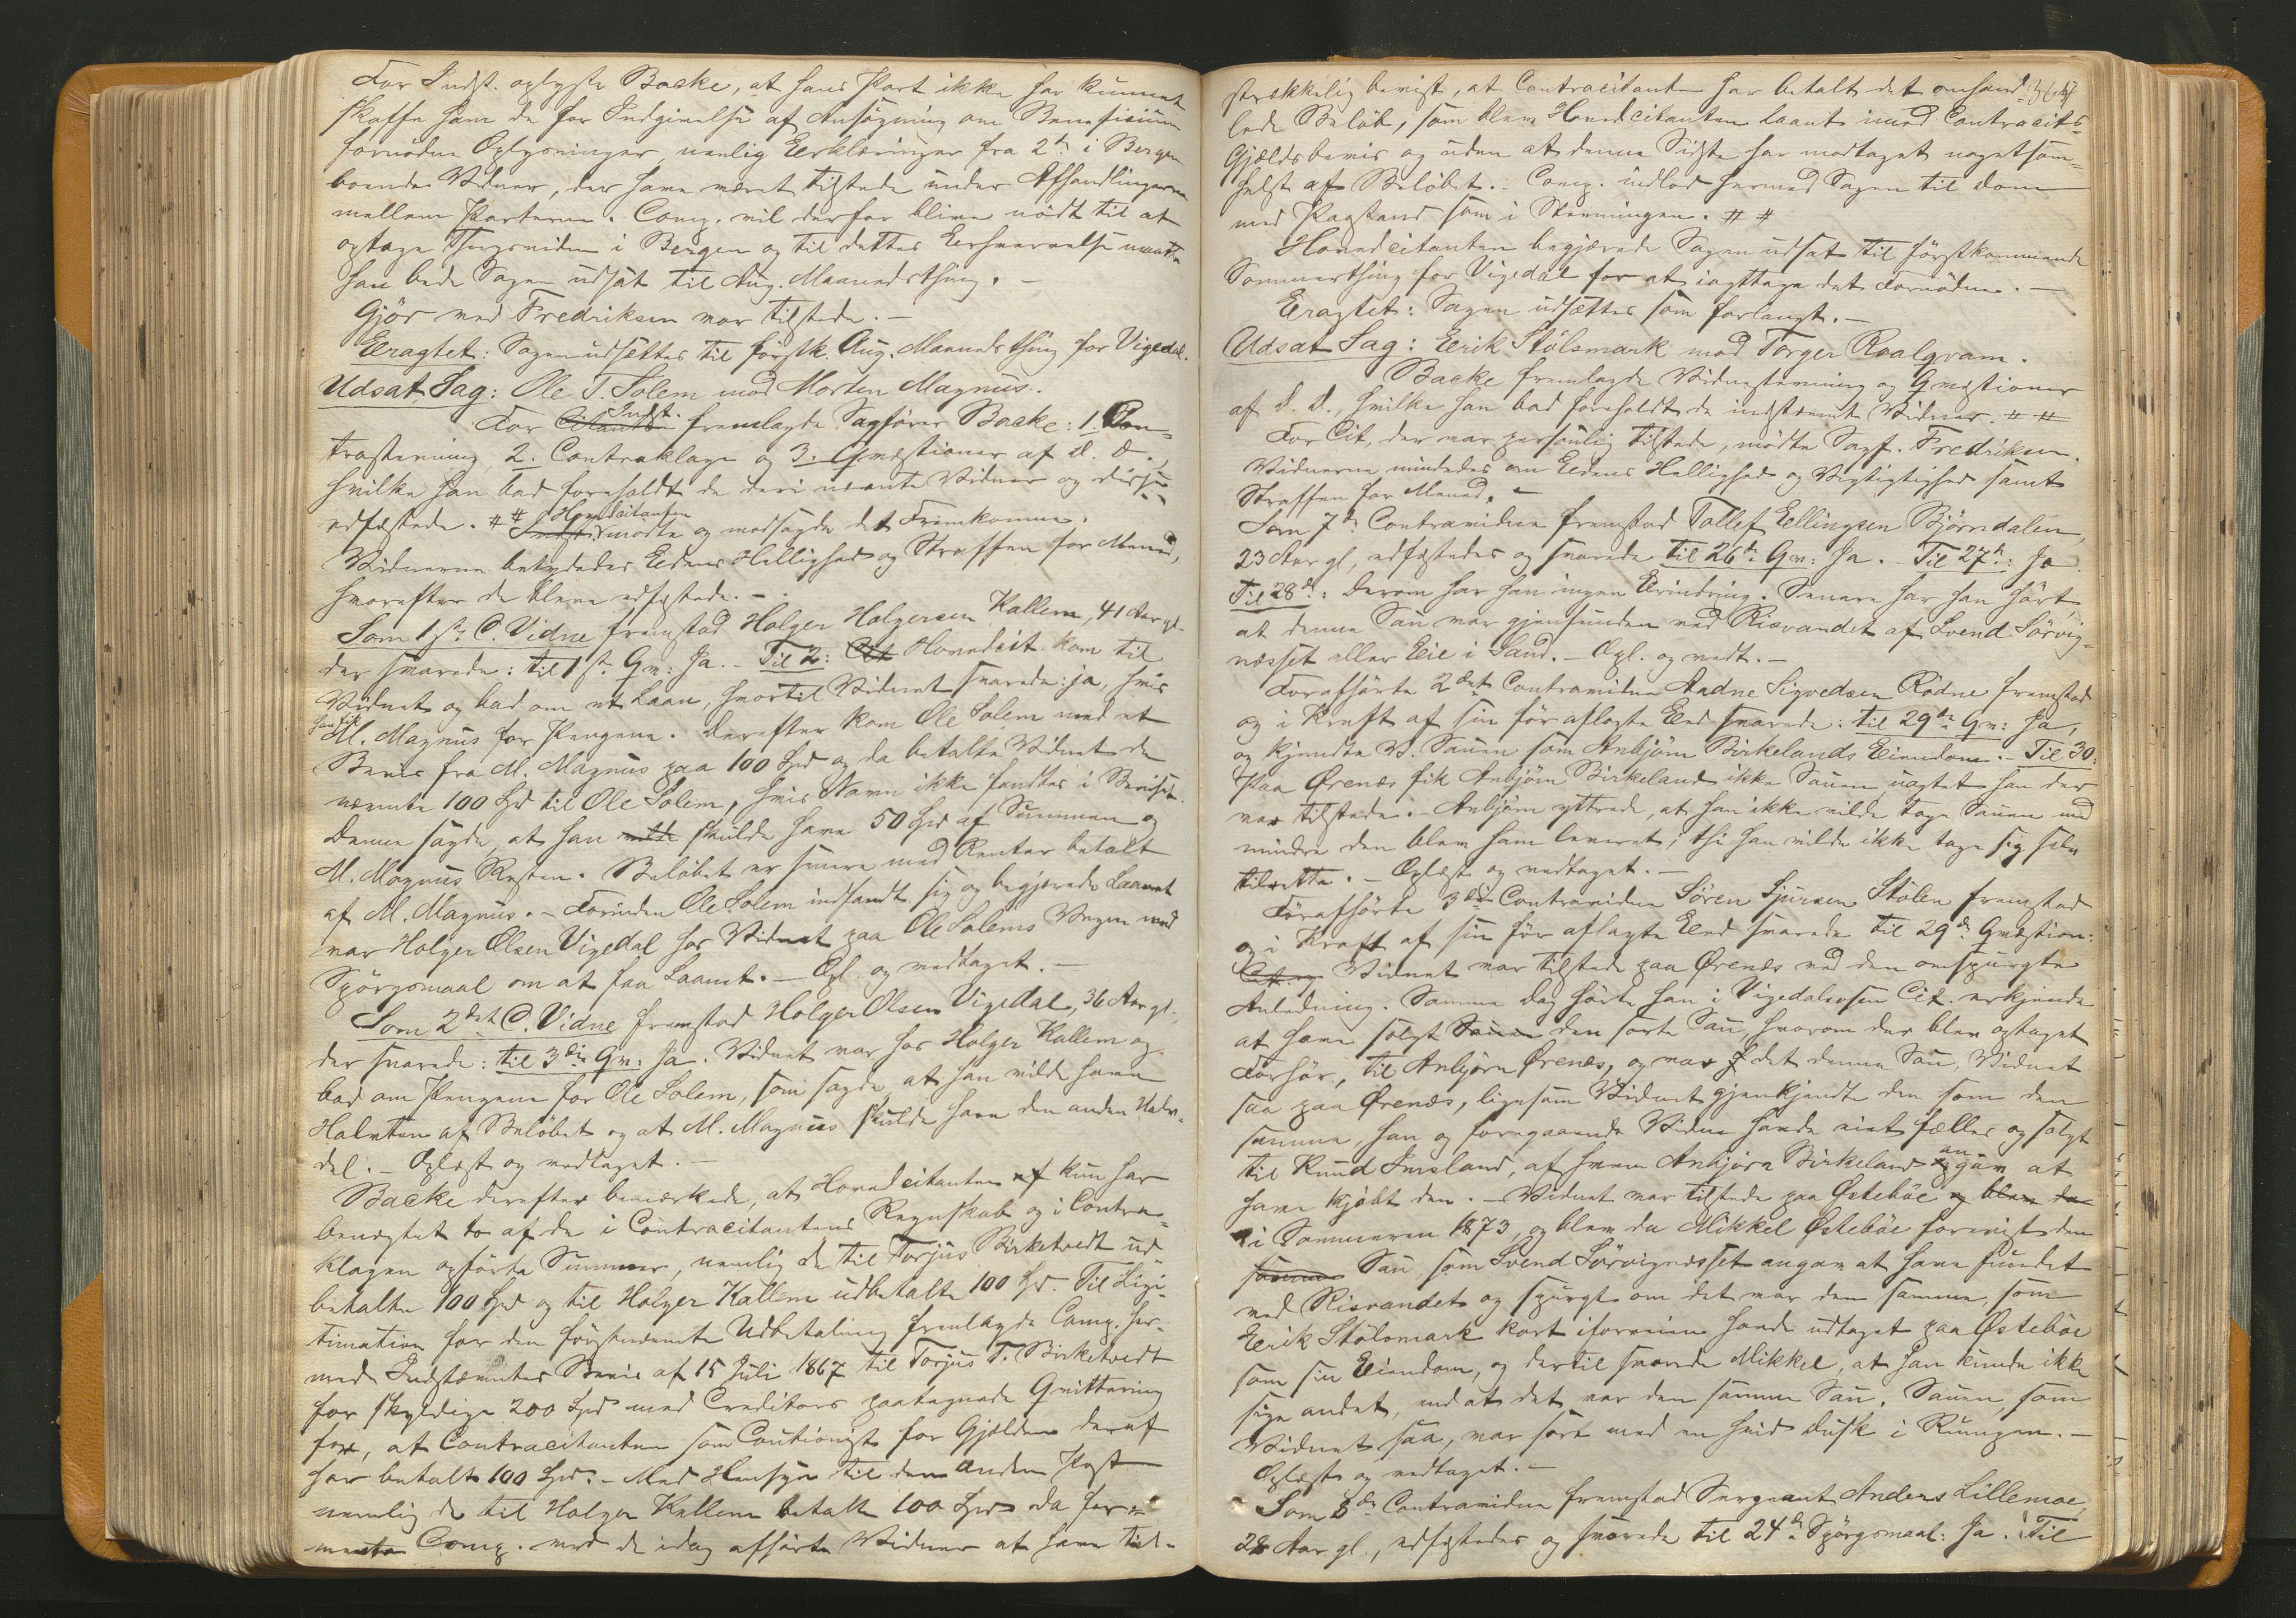 For Indst. oplyste Backe, at hans Part ikke har kunnet
skaffe ham de for Indgivelse af Ansøgning om Beneficium
fornødne Oplysninger, nemlig Erklæringer fra 2de i Bergen
boende Vidner, der have været tilstede under Afhandlingerne
mellem Parterne. Comp. vil derfor blive nødt til at
optage Thingsvidne i Bergen og til dettes Erhvervelse maatte
han bede Sagen udsat til Aug. Maanedsthing. –
Gjør ved Fredriksen var tilstede. –
Eragtet: Sagen udsættes til førstk. Aug. Maanedsthing for Vigedal.
Udsat Sag: Ole T. Solem mod Morten Magnus.
For Citanten Indst. fremlagde Sagfører Backe: 1. Con-
trastevning, 2. Contraklage og 3. Qvæstioner af d. D.,
hvilke han bad foreholdt de deri nævnte Vidner og disse
edfæstede. # # Indst. Hovedcitanten mødte og modsagde det Fremkomne.
Vidnerne betydedes Edens Hellighed og Straffen for Mened,
hvorefter de bleve edfæstede. –
Som 1ste C. Vidne fremstod Holger Holgersen Kallem, 41 Aar gl.
der svarede: til 1ste Qv: Ja. – Til 2: Cit Hovedcit. kom til
Vidnet og bad om et Laan, hvortil Vidnet svarede: ja, hvis
han fik M. Magnus for Pengene. Derefter kom Ole Solem med et
Bevis fra M. Magnus paa 100 Spd og da betalte Vidnet de
nævnte 100 Spd til Ole Solem, hvis Navn ikke fandtes i Beviset.
Denne sagde, at han vilde skulde have 50 Spd af Summen og
M. Magnus Resten. Beløbet er senere med Renter betalt
af M. Magnus. – Forinden Ole Solem indfandt sig og begjærede Laanet
var Holger Olsen Vigedal hos Vidnet paa Ole Solems Vegne med
Spørgsmaal om at faa Laanet. – Opl. og vedtaget. –
Som 2det C. Vidne fremstod Holger Olsen Vigedal, 36 Aar gl.,
der svarede: til 3die Qv: Ja. Vidnet var hos Holger Kallem og
bad om Pengene for Ole Solem, som sagde, at han vilde have
Halvten af Beløbet og at M. Magnus skulde have den anden Halv-
del. – Oplæst og vedtaget. –
Backe derefter bemærkede, at Hovedcitanten kun har
benægtet to af de i Contracitantens Regnskab og i Contra-
klagen opførte Summer, nemlig de til Torjus Birketvedt ud-
betalte 100 Spd og til Holger Kallem udbetalte 100 Spd. Til Legi-
timation for den førstnævnte Udbetaling fremlagde Comp. her-
med Indstævntes Bevis af 15 Juli 1867 til Torjus T. Birketvedt
for skyldige 200 Spd med Creditors paategnede Qvittering
for, at Contracitanten som Cautionist for Gjælden deraf
har betalt 100 Spd. – Med Hensyn til den anden Post
nemlig de til Holger Kallem betalte 100 Spd da for-
mente Comp. med de idag afhørte Vidner at have til-
strækkelig bevist, at Contracitanten har betalt det omhand-
lede Beløb, som blev Hovedcitanten laant imod Contracits
Gjældsbevis og uden at denne Sidste har modtaget nogetsom-
helst af Beløbet. – Comp. indlod hermed Sagen til Dom
med Paastand som i Stevningen. # #
Hovedcitanten begjærede Sagen udsat til førstkommende
Sommerthing for Vigedal for at iagttage det Fornødne. –
Eragtet: Sagen udsættes som forlangt. –
Udsat Sag: Eerik Stølsmark mod Torger Roalqvam.
Backe fremlagde Vidnestevning og Qvæstioner
af d. D., hvilke han bad foreholdt de indstævnte Vidner. # #
For Cit, der var personlig tilstede, mødte Sagf. Fredriksen.
Vidnerne mindedes om Edens Hellighed og Vigtighed samt
Straffen for Mened. –
Som 7de Contravidne fremstod Tollef Ellingsen Bjørndalen,
23 Aar gl, edfæstedes og svarede til 26de Qv: Ja. – Til 27de: Ja
Til 28de: Derom har han ingen Erindring. Senere har han hørt,
at denne Sau var gjenfunden ved Risvandet af Svend Sørvig-
næsset eller Eie i Sand. – Opl. og vedt. –
Forafhørte 2det Contravidne Aadne Sigvedsen Rødne fremstod
og i Kraft af sin før aflagte Eed svarede: til 29de Qv: Ja,
og kjendte V. Sauen som Anbjørn Birkelands Eiendom. – Til 30:
Paa Ørenæs fik Anbjørn Birkeland ikke Sauen uagtet han der
var tilstede. – Anbjørn yttrede, at han ikke vilde tage Sauen med
mindre den blev ham leveret; thi han vilde ikke tage sig selv
tilrette. – Oplæst og vedtaget. –
Førafhørte 3die Contravidne Sören Sjursen Stölen fremstod
og i Kraft af sin før aflagte Eed svarede til 29de Qvæstion:
Vidnet var tilstede paa Ørenæs ved den omspurgte
Anledning. Samme Dag hørte han i Vigedalsosen Cit. erkjende
at have solgt Sauen den sorte Sau, hvorom der blev optaget
Forhør, til Anbjørn Ørenæs, og var det denne Sau, Vidnet
saa paa Ørenæs, ligesom Vidnet gjenkjendte den som den
samme, han og foregaaende Vidne havde eiet fælles og solgt
til Knud Imsland, af hvem Anbjørn Birkeland angav at
have kjøbt den. – Vidnet var tilstede paa Østebøe og blev da
i Sommeren 1873, og blev da Mikkel Østebøe forevist den
samme Sau som Svend Sørvignæsset angav at have fundet
ved Risvandet og spurgt om det var den samme, som
Eerik Stølsmark kort iforveien havde udtaget paa Østebøe
som sin Eiendom, og dertil svarede Mikkel, at han kunde ikke
sige andet, end at det var den samme Sau. Sauen, som
Vidnet saa, var sort med en hvid Dusk i Rumpen. –
Oplæst og vedtaget. –
Som 8de Contravidne fremstod Sergeant Anders Lillemoe,
28 Aar gl., edfæstedes og svarede til 24de Spørgsmaal: Ja. Til